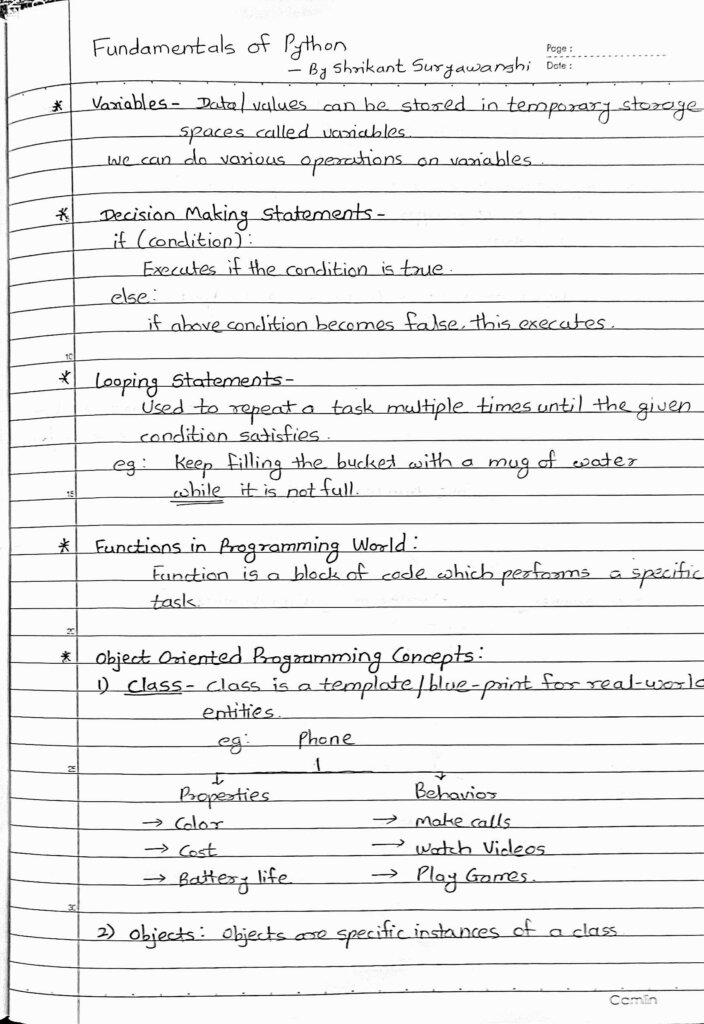 Fundamentals of Python
- By Shrikant Suryawanshi
Page :
Date :
* Variables - Data/values can be stored in temporary storage
spaces called variables.
We can do various operations on variables.
* Decision Making Statements -
if (condition) :
Executes if the condition is true.
else :
if above condition becomes false, this executes.
10
* Looping Statements -
Used to repeat a task multiple times until the given
condition satisfies.
eg : Keep filling the bucket with a mug of water
15
while it is not full.
* Functions in Programming World :
Function is a block of code which performs a specific
task.
20
* Object Oriented Programming Concepts :
1) Class - Class is a template/blue-print for real-world
entities.
eg : Phone
25
Properties Behavior
→ Color → Make calls
→ Cost → Watch Videos
→ Battery life → Play Games.
30
2) Objects : Objects are specific instances of a class
Camlin